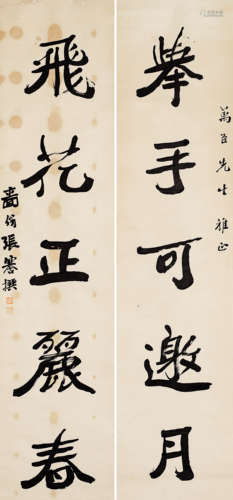 萬臣先生雅正
舉手可邀月
飛花正麗春
張謇撰